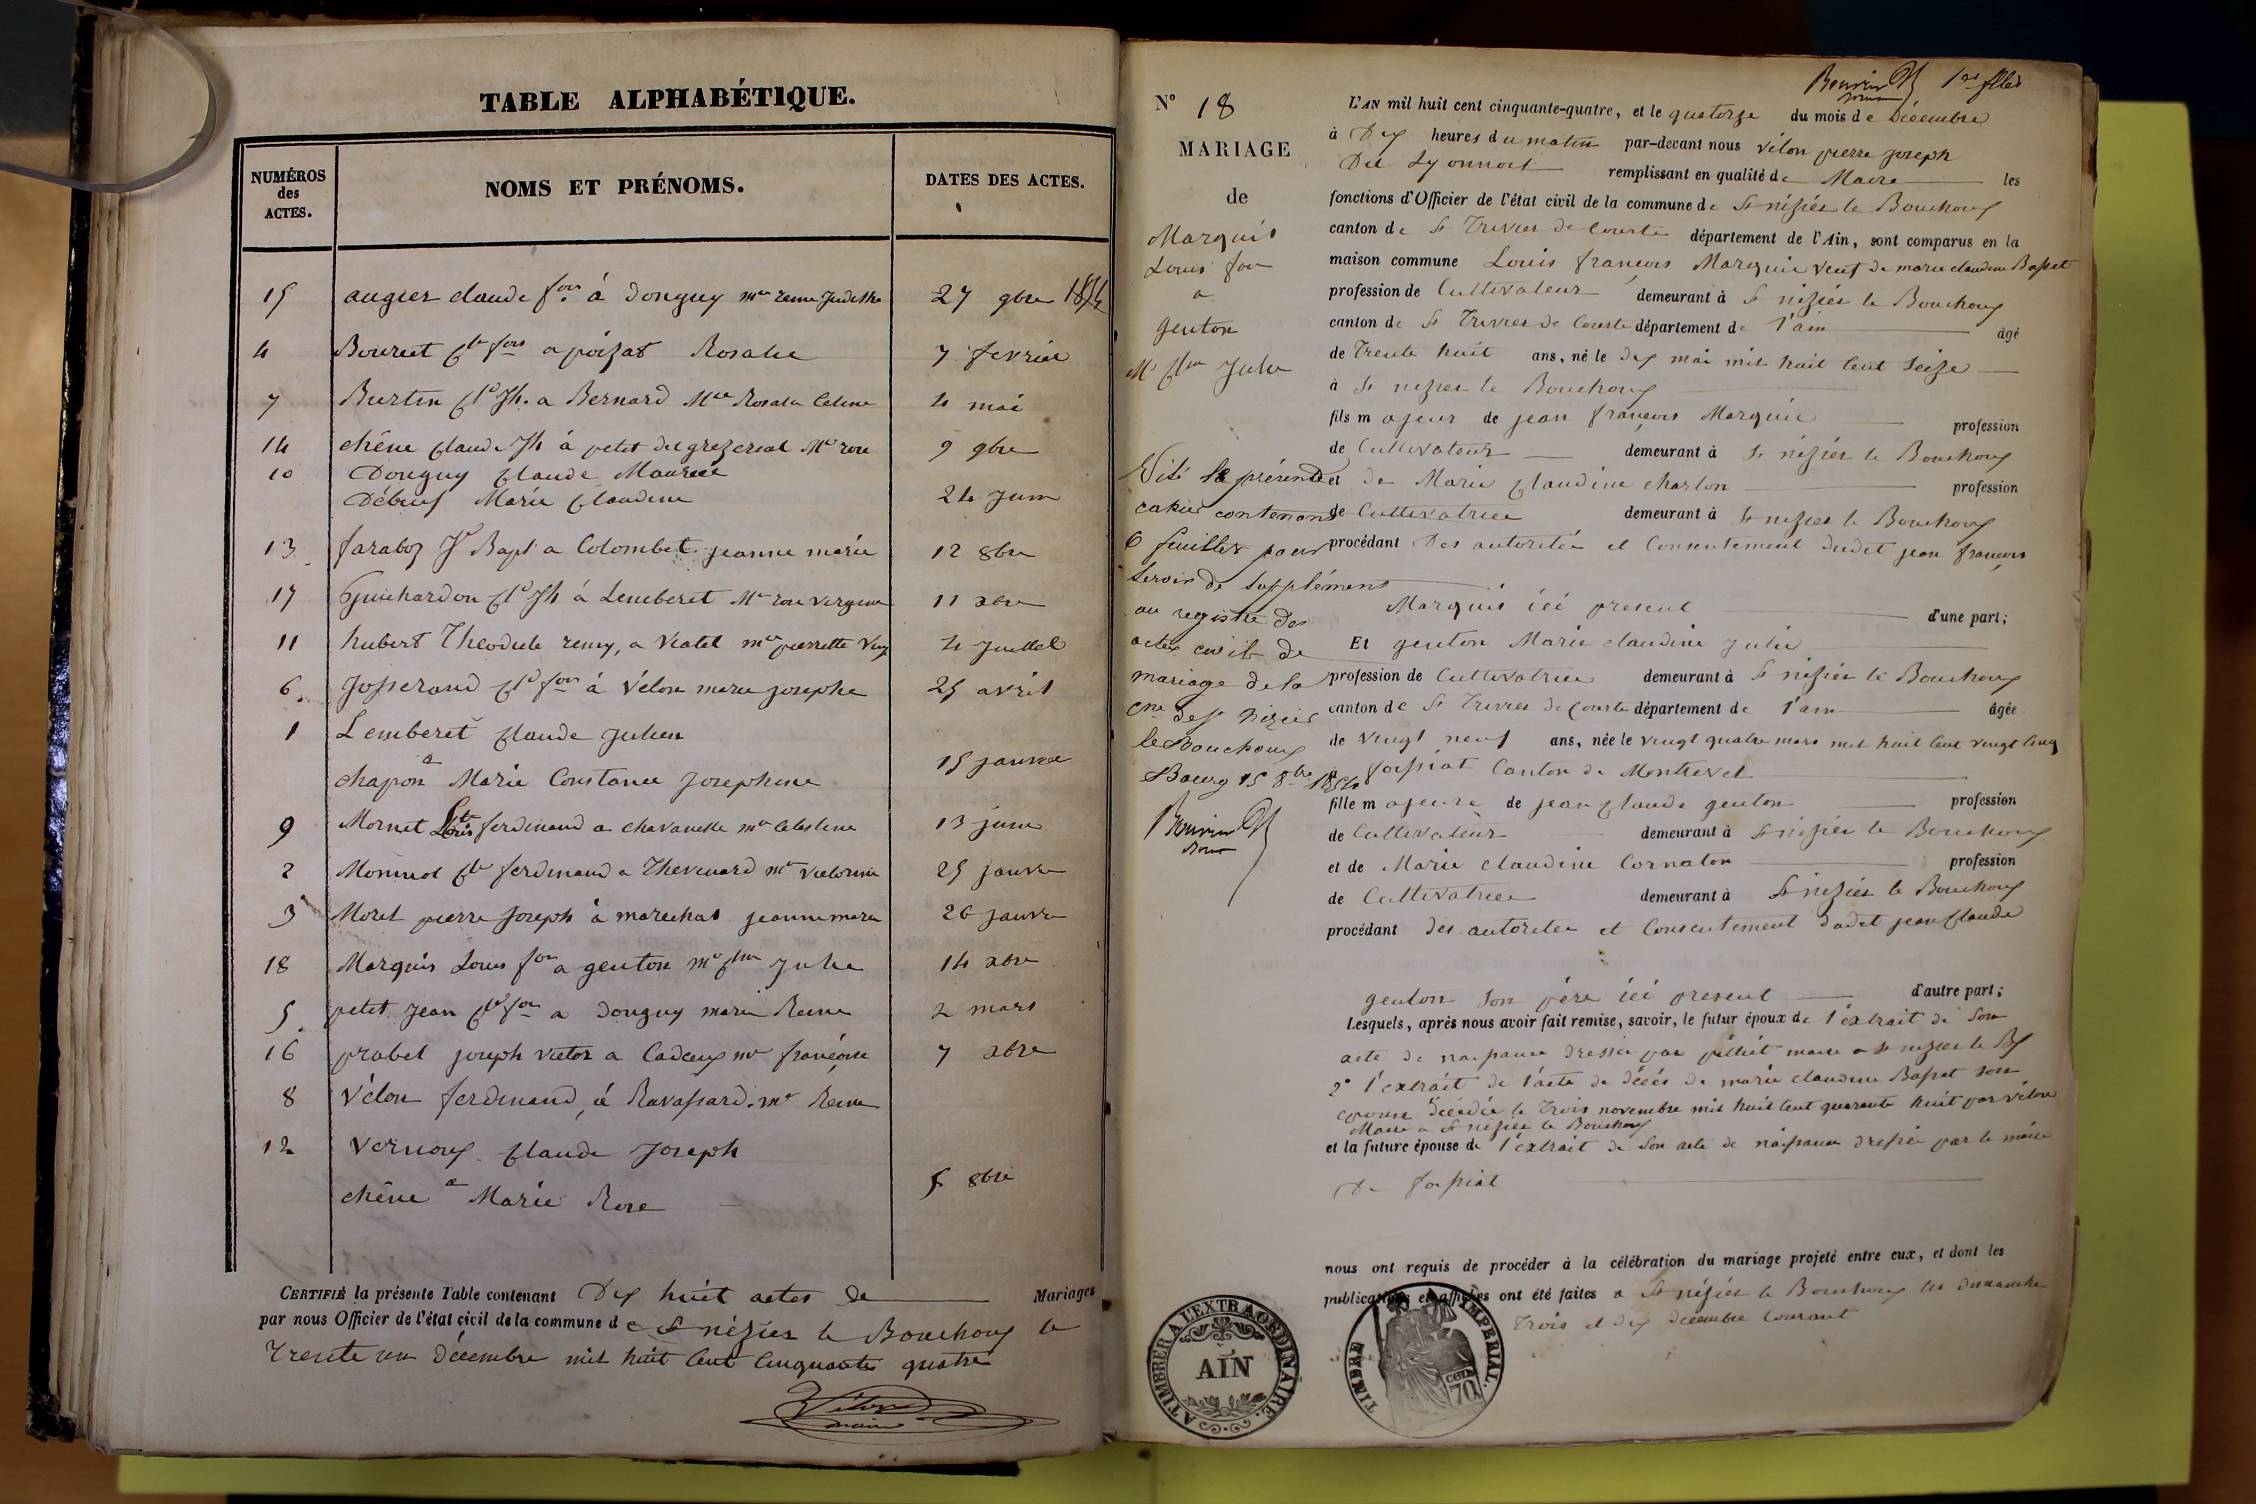 TABLE ALPHABÉTIQUE.
NUMÉROS des ACTES.
NOMS ET PRÉNOMS.
DATES DES ACTES.
15 augier claude fois à Donguy mie reine Judithe 27 9bre 1854
4 Bourcet Cde fois a poizat Rosalie 7 fevrier
7 Burtin Cd Jh. a Bernard Mie Rosalie Celine 4 mai
14 chêne Claude Jh à petit 9 9bre
10 Donguy Claude Maurice
Débeuf Marie Claudine 24 Juin
13 faraboz Jn Bapt a Colombet jeanne marie 12 8bre
17 Guichardon Cd Jh à Lemberet Me rose vergine 11 xbre
11 hubert Theodule remy, a Viallet mie pierrette 4 Juillet
6. Josserand Cd fois à Vélon marie josephe 25 avril
1 Lemberet Claude Julien
à
chapon Marie Constance Josephine 15 janvier
9 Mornet Louis ferdinand a chavanelle mie Celestine 13 juin
2 Moninot Cde ferdinand a Thevenard me Victorine 25 janvier
3 Morel pierre Joseph à marechal jeanne marie 26 Janvier
18 Marquis Louis fois a genton me Cdine Julie 14 xbre
5. petit Jean Cd fois a Donguy marie Reine 2 mars
16 prabel joseph victor a Cadeux me françoise 7 xbre
8 Vélon ferdinand, à Ravassard. me Reine
12 Vernoux Claude Joseph
à
chêne Marie Rose 5 8bre
CERTIFIÉ la présente Table contenant Dix huit actes de Mariages
par nous Officier de l'état civil de la commune de St nizier le Bouchoux le
trente un Décembre mil huit Cent Cinquante quatre
Vélon
maire
Bouvier
Nº 18
MARIAGE
de
Marquis
Louis fois
a
genton
Me Cdine Julie
Visé le présent
cahier contenant
6 feuillets pour
servir de supplément
au registre des
actes civils de
mariage de la
cne de St Nizier
le Bouchoux
Bourg 15 8bre 1854
Bouvier
L'AN mil huit cent cinquante-quatre, et le quatorze du mois de Décembre
à Dix heures du matin par-devant nous Vélon pierre joseph
Du Lyonnois remplissant en qualité de Maire les
fonctions d'Officier de l'état civil de la commune de St nizier le Bouchoux
canton de St Trivier de Courte département de l'Ain, sont comparus en la
maison commune Louis françois Marquis veuf de marie claudine Basset
profession de Cultivateur demeurant à St nizier le Bouchoux
canton de St Trivier de Courte département de l'ain âgé
de Trente huit ans, né le dix mai mil huit Cent Seize
à St nizier le Bouchoux
fils majeur de jean françois Marquis profession
de Cultivateur demeurant à St nizier le Bouchoux
et de Marie Claudine charlon profession
de Cultivatrice demeurant à St nizier le Bouchoux
procédant Des autorités et Consentement dudit jean françois
Marquis ici present d'une part;
Et genton Marie claudine Julie
profession de Cultivatrice demeurant à St nizier le Bouchoux
canton de St Trivier de Courte département de l'ain âgée
de vingt neuf ans, née le vingt quatre mars mil huit Cent vingt Cinq
à foissiat Canton de Montrevel
fille majeure de jean Claude genton profession
de Cultivateur demeurant à St nizier le Bouchoux
et de Marie claudine Cornaton profession
de Cultivatrice demeurant à St nizier le Bouchoux
procédant des autorités et Consentement dudit jean Claude
genton son père ici present d'autre part;
Lesquels, après nous avoir fait remise, savoir, le futur époux de l'extrait de son
acte de naissance dressé par maire a St nizier le Bx
2º l'extrait de l'acte de décés de marie claudine Basset son
epouse Décédée le trois novembre mil huit Cent quarante huit par vélon
Maire a St nizier le Bouchoux
et la future épouse de l'extrait de son acte de naissance dressée par le maire
De foissiat
nous ont requis de procéder à la célébration du mariage projeté entre eux, et dont les
publications et affiches ont été faites a St nizier le Bouchoux les dimanche
Trois et dix Décembre Courant
A TIMBRER A L'EXTRAORDINAIRE.
AIN
TIMBRE IMPERIAL.
CEN. 70